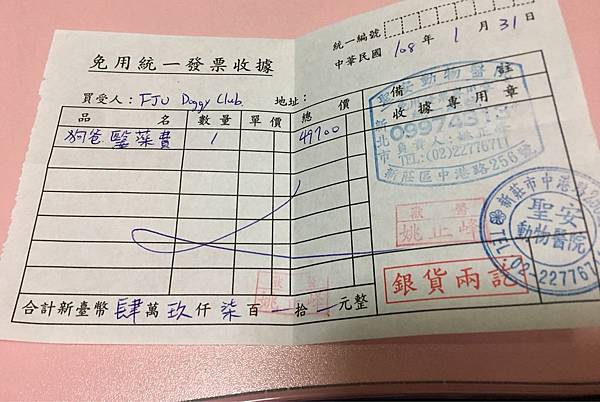 統一編號
中華民國 108 年 1 月 31 日
免用統一發票收據
買受人：FJU Doggy Club. 地址：
品名 數量 單價 總價 備註
狗爸 醫藥費 1 49700
聖安動物醫院
收據專用章
新北市
TEL:(02)22776717
新莊區中港路256號
獸醫
姚正峰
聖安
動物醫院
銀貨兩訖
合計新臺幣 肆 萬 玖 仟 柒 百 拾 元整